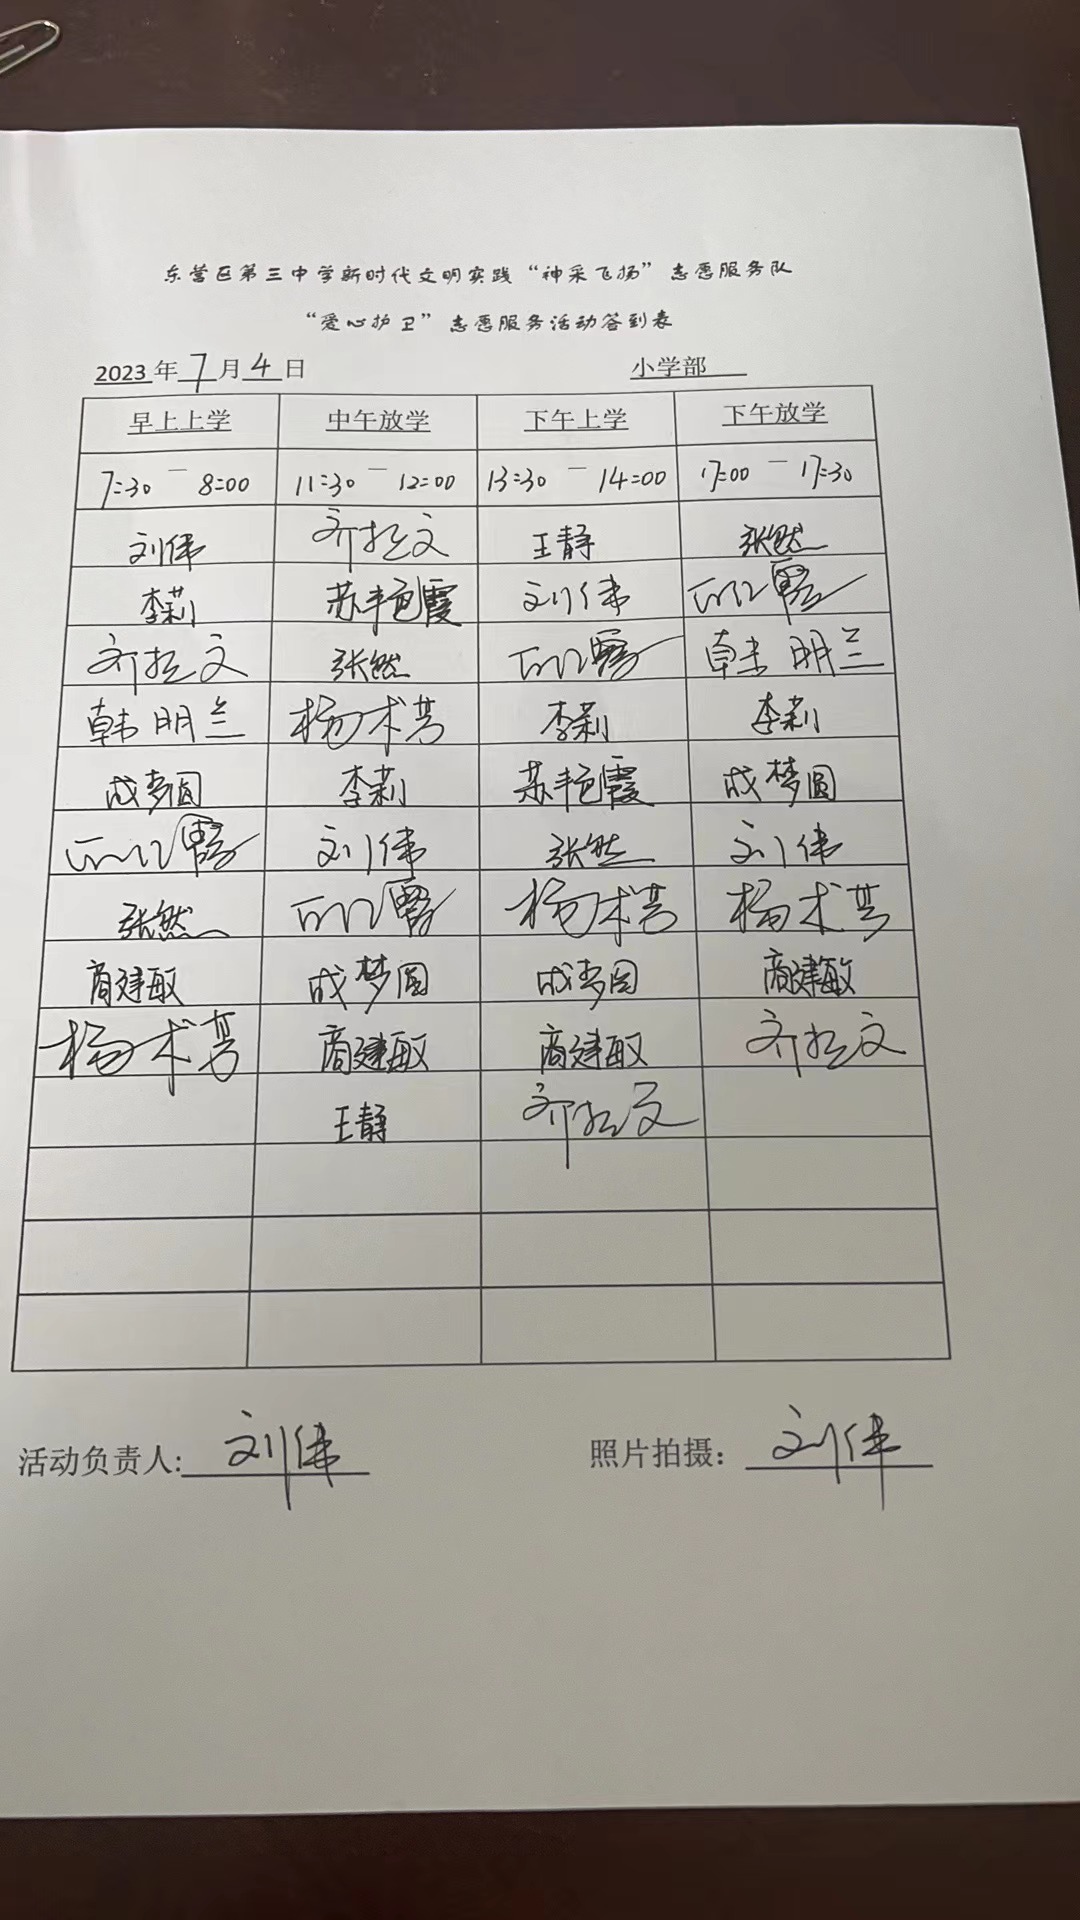 东营区第三中学新时代文明实践“神采飞扬”志愿服务队
“爱心护卫”志愿服务活动签到表
2023年7月4日 小学部
早上上学 中午放学 下午上学 下午放学
7:30 — 8:00 11:30 — 12:00 13:30 — 14:00 17:00 — 17:30
刘伟 王静 张然
李莉 苏艳霞 刘伟
张然 韩明兰
韩明兰 杨术芳 李莉 李莉
成梦圆 李莉 苏艳霞 成梦圆
刘伟 张然 刘伟
张然 杨术芳 杨术芳
商建敏 成梦圆 成梦圆 商建敏
杨术芳 商建敏 商建敏
王静
活动负责人: 刘伟 照片拍摄: 刘伟